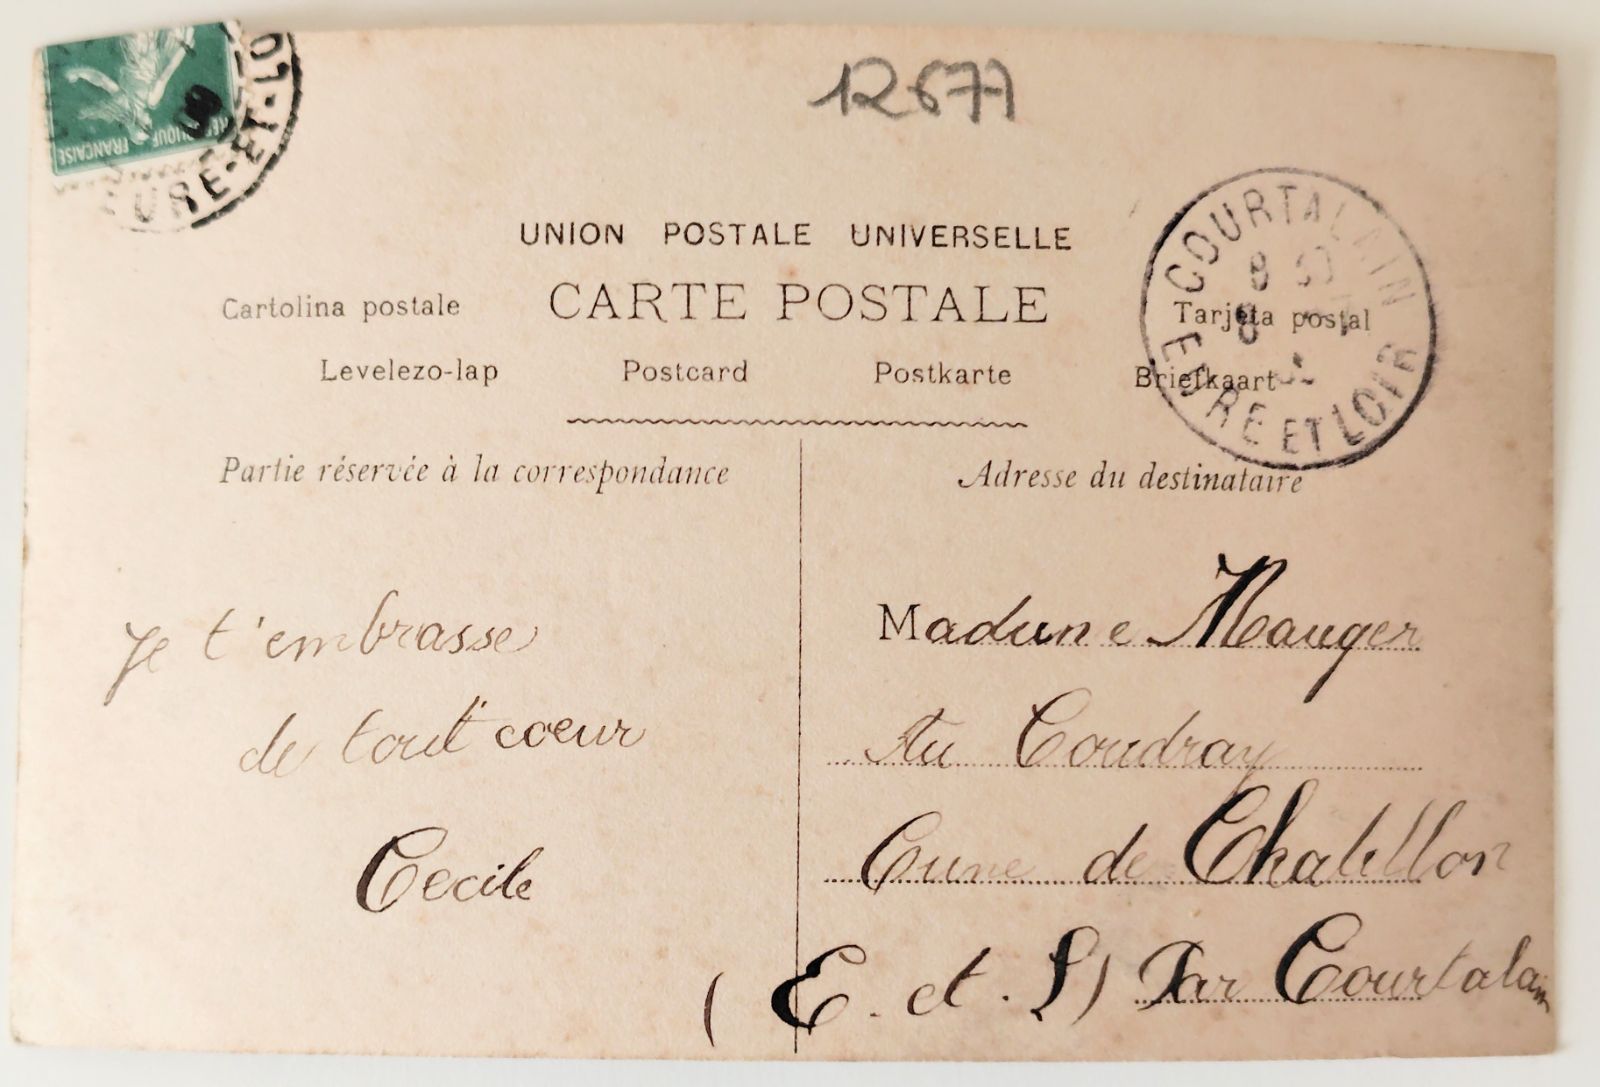 RÉPUBLIQUE FRANÇAISE
EURE-ET-LO
12677
COURTALAIN
EURE ET LOIR
UNION POSTALE UNIVERSELLE
Cartolina postale CARTE POSTALE Tarjeta postal
Levelezo-lap Postcard Postkarte Briefkaart
Partie réservée à la correspondance
Adresse du destinataire
Je t'embrasse
de tout coeur
Cecile
Madame Mauger
Au Coudray
Cune de Chatillon
(E. et. L) Par Courtalain